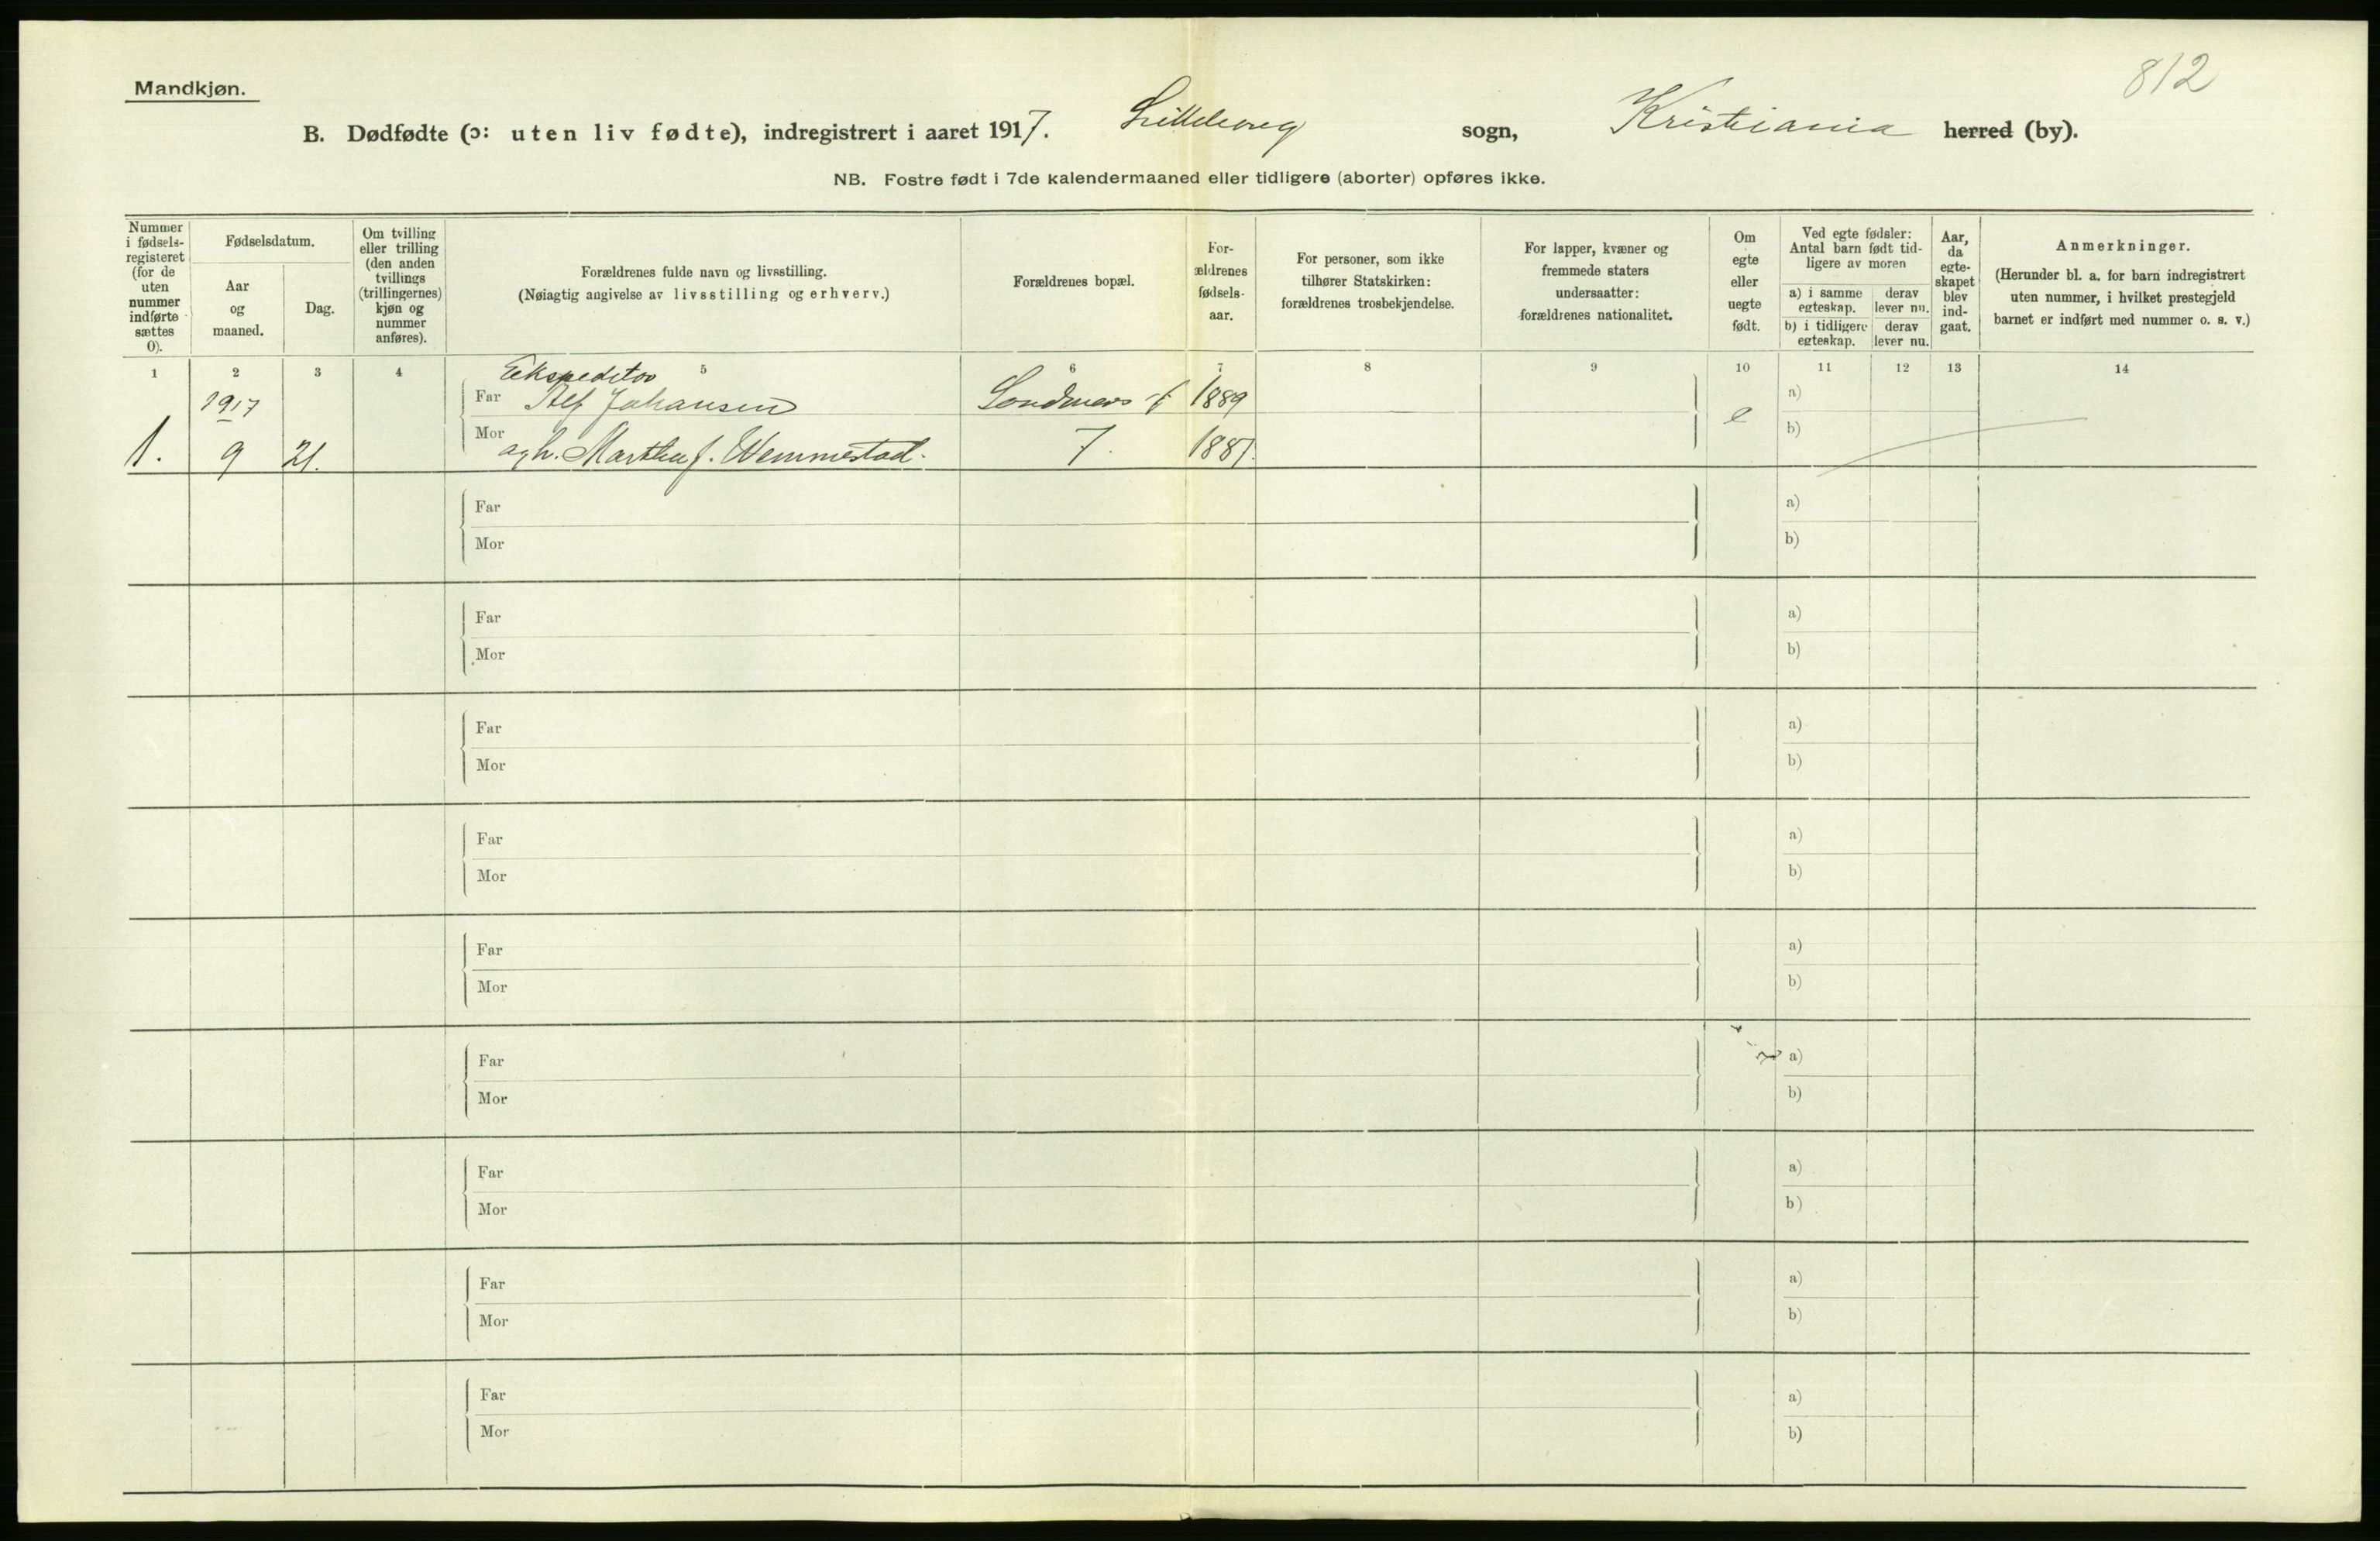 812
Mandkjøn.
B. Dødfødte (ɔ: uten liv fødte), indregistrert i aaret 1917. Lilleborg sogn, Kristiania herred (by).
NB. Fostre født i 7de kalendermaaned eller tidligere (aborter) opføres ikke.
Nummer
i fødsels-
registeret
(for de
uten
nummer
indførte
sættes
0).
Fødselsdatum.
Aar
og
maaned.
Dag.
Om tvilling
eller trilling
(den anden
tvillings
(trillingernes)
kjøn og
nummer
anføres).
Forældrenes fulde navn og livsstilling.
(Nøiagtig angivelse av livsstilling og erhverv.)
Forældrenes bopæl.
For-
ældrenes
fødsels-
aar.
For personer, som ikke
tilhører Statskirken:
forældrenes trosbekjendelse.
For lapper, kvæner og
fremmede staters
undersaatter:
forældrenes nationalitet.
Om
egte
eller
uegte
født.
Ved egte fødsler:
Antal barn født tid-
ligere av moren
a) i samme
egteskap.
derav
lever nu.
b) i tidligere
egteskap.
derav
lever nu.
Aar,
da
egte-
skapet
blev
ind-
gaat.
Anmerkninger.
(Herunder bl. a. for barn indregistrert
uten nummer, i hvilket prestegjeld
barnet er indført med nummer o. s. v.)
1 2 3 4 5 6 7 8 9 10 11 12 13 14
Ekspeditør
1917 Far Alf Johansen 1889 e a)
1. 9 21. Mor Martha f. Wemmestad. 7. 1887. b)
Far a)
Mor b)
Far a)
Mor b)
Far a)
Mor b)
Far a)
Mor b)
Far a)
Mor b)
Far a)
Mor b)
Far a)
Mor b)
Far a)
Mor b)
Far a)
Mor b)